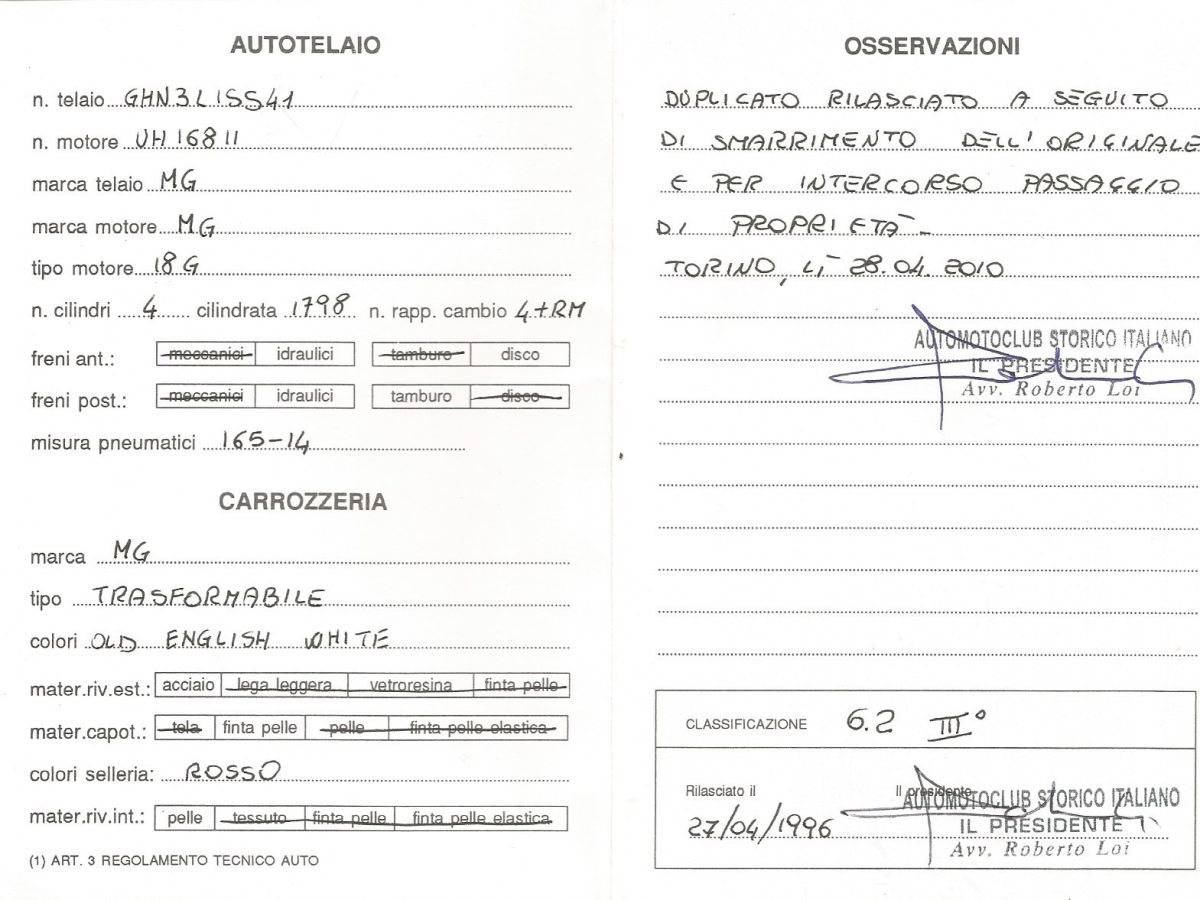 AUTOTELAIO
n. telaio GHN3L1SS41
n. motore UH16811
marca telaio MG
marca motore MG
tipo motore 18G
n. cilindri 4 cilindrata 1798 n. rapp. cambio 4+RM
freni ant.: meccanici idraulici tamburo disco
freni post.: meccanici idraulici tamburo disco
misura pneumatici 165-14
CARROZZERIA
marca MG
tipo TRASFORMABILE
colori OLD ENGLISH WHITE
mater.riv.est.: acciaio lega leggera vetroresina finta pelle
mater.capot.: tela finta pelle pelle finta pelle elastica
colori selleria: ROSSO
mater.riv.int.: pelle tessuto finta pelle finta pelle elastica
(1) ART. 3 REGOLAMENTO TECNICO AUTO
OSSERVAZIONI
DUPLICATO RILASCIATO A SEGUITO
DI SMARRIMENTO DELL'ORIGINALE
E PER INTERCORSO PASSAGGIO
DI PROPRIETÀ -
TORINO, LÌ 28.04.2010
AUTOMOTOCLUB STORICO ITALIANO
IL PRESIDENTE
Avv. Roberto Loi
CLASSIFICAZIONE 6.2 III°
Rilasciato il Il presidente
AUTOMOTOCLUB STORICO ITALIANO
27/04/1996 IL PRESIDENTE
Avv. Roberto Loi